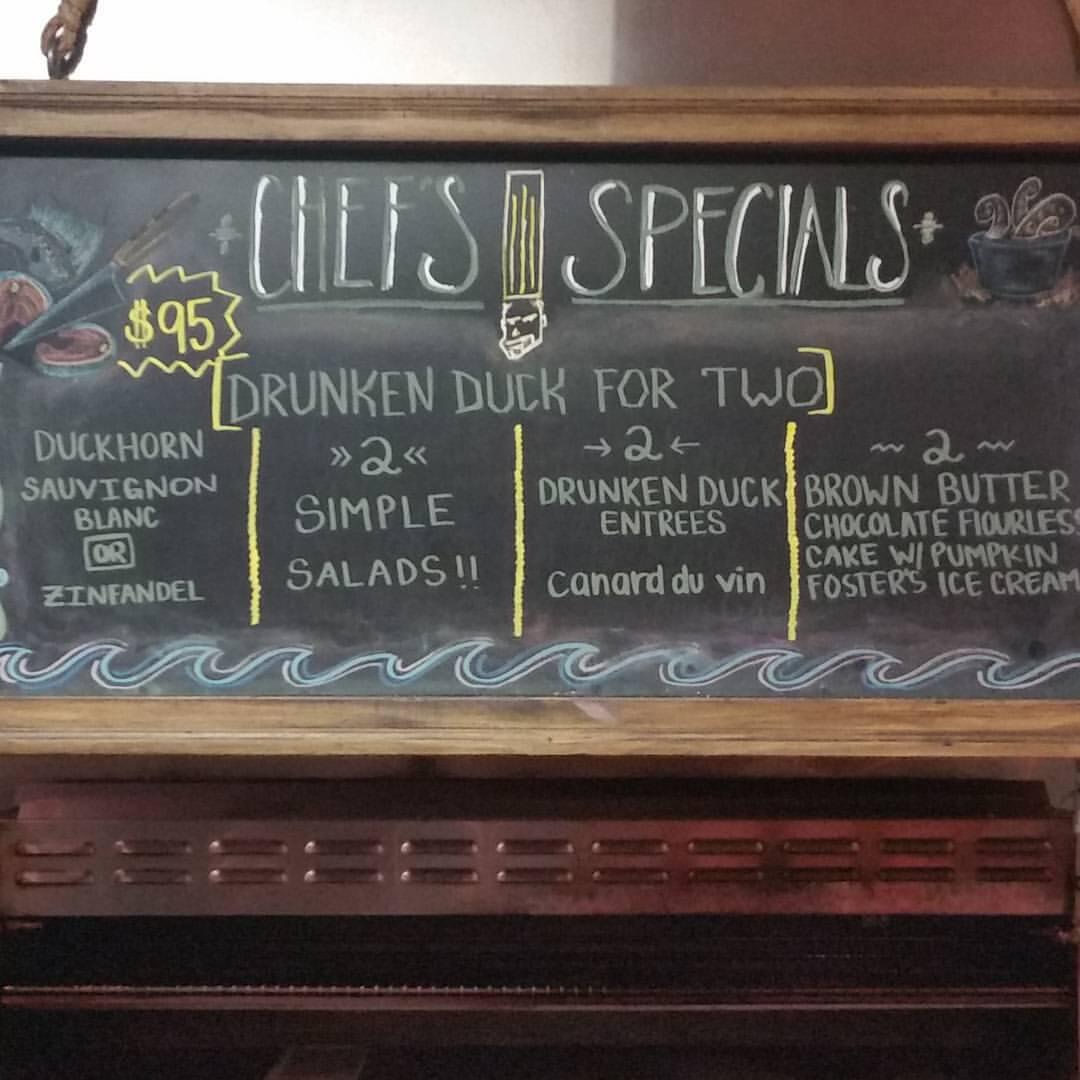 CHEF'S SPECIALS
$95
DRUNKEN DUCK FOR TWO
DUCKHORN
SAUVIGNON
BLANC
OR
ZINFANDEL
»2«
SIMPLE
SALADS!!
→2←
DRUNKEN DUCK
ENTREES
Canard du vin
~ 2 ~
BROWN BUTTER
CHOCOLATE FlOURLESS
CAKE W/ PUMPKIN
FOSTER'S ICE CREAM